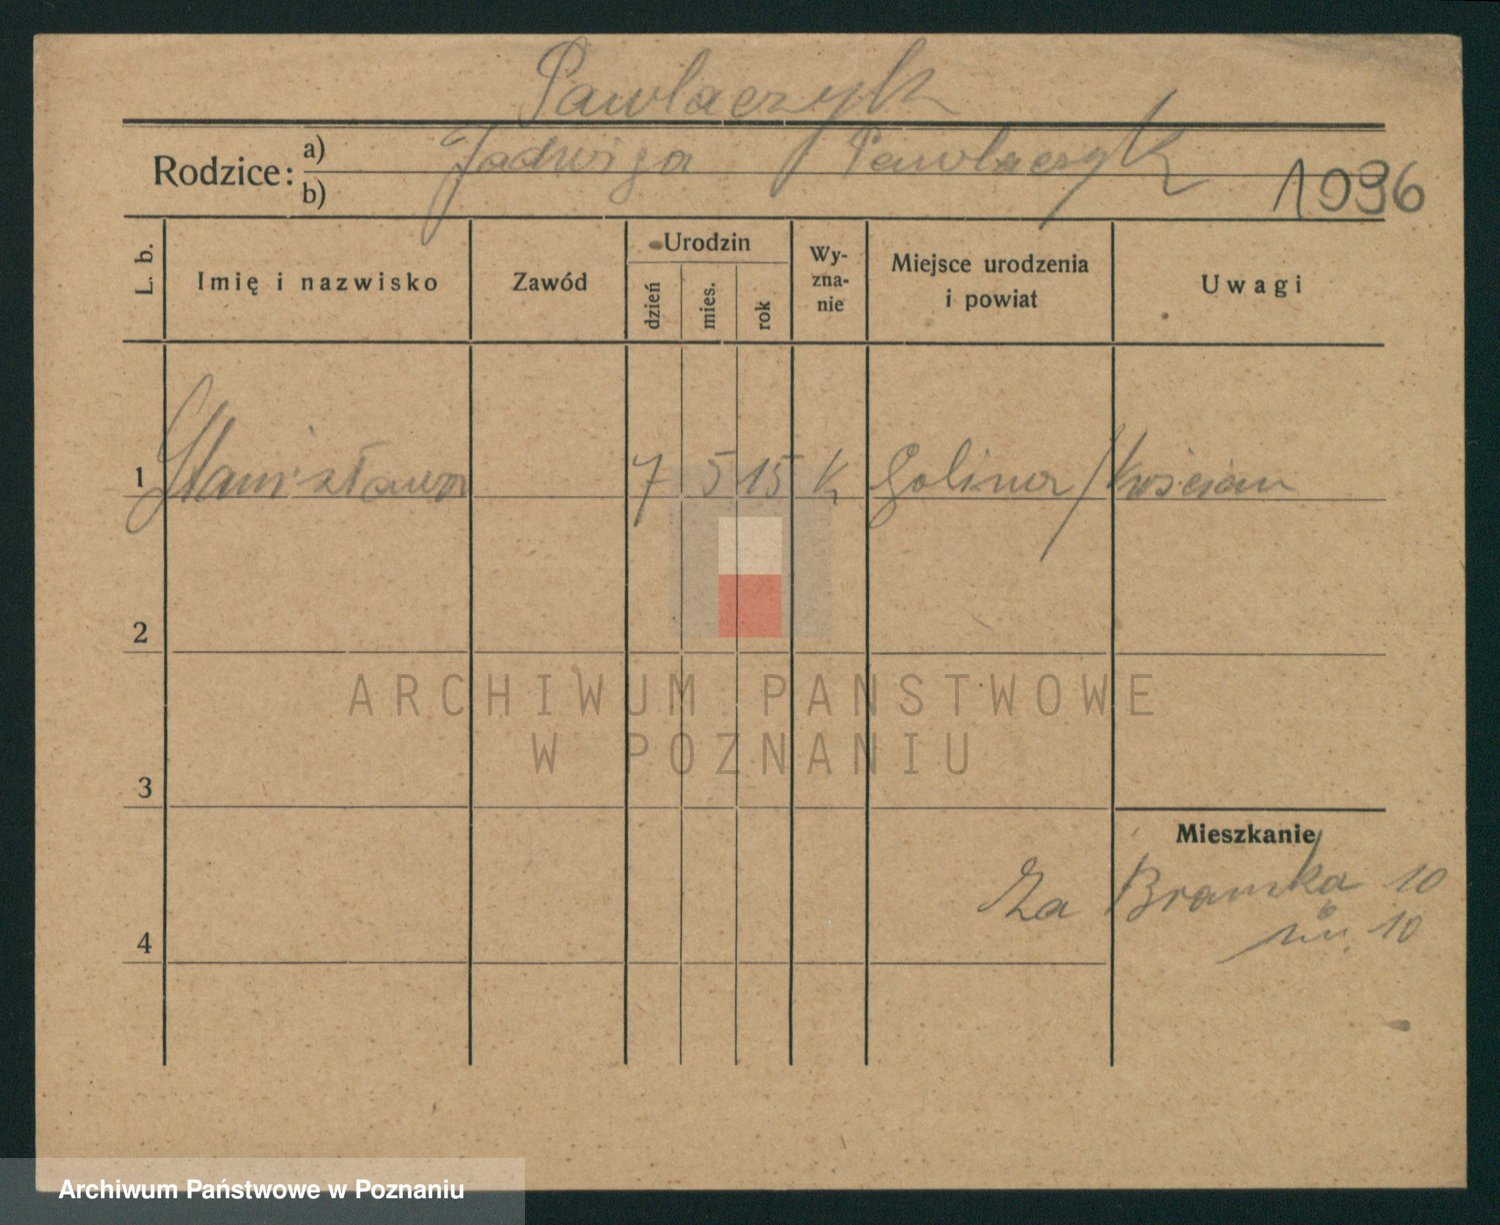 Pawlaczyk
Rodzice: a) Jadwiga Pawlaczyk
b)
1096
L. b. Imię i nazwisko Zawód Urodzin dzień mies. rok Wy-zna-nie Miejsce urodzenia i powiat Uwagi
1 Stanisława 7 5 15 k Golina / Kościan
2
ARCHIWUM PAŃSTWOWE
W POZNANIU
3
Mieszkanie
Za Bramka 10
m. 10
4
Archiwum Państwowe w Poznaniu